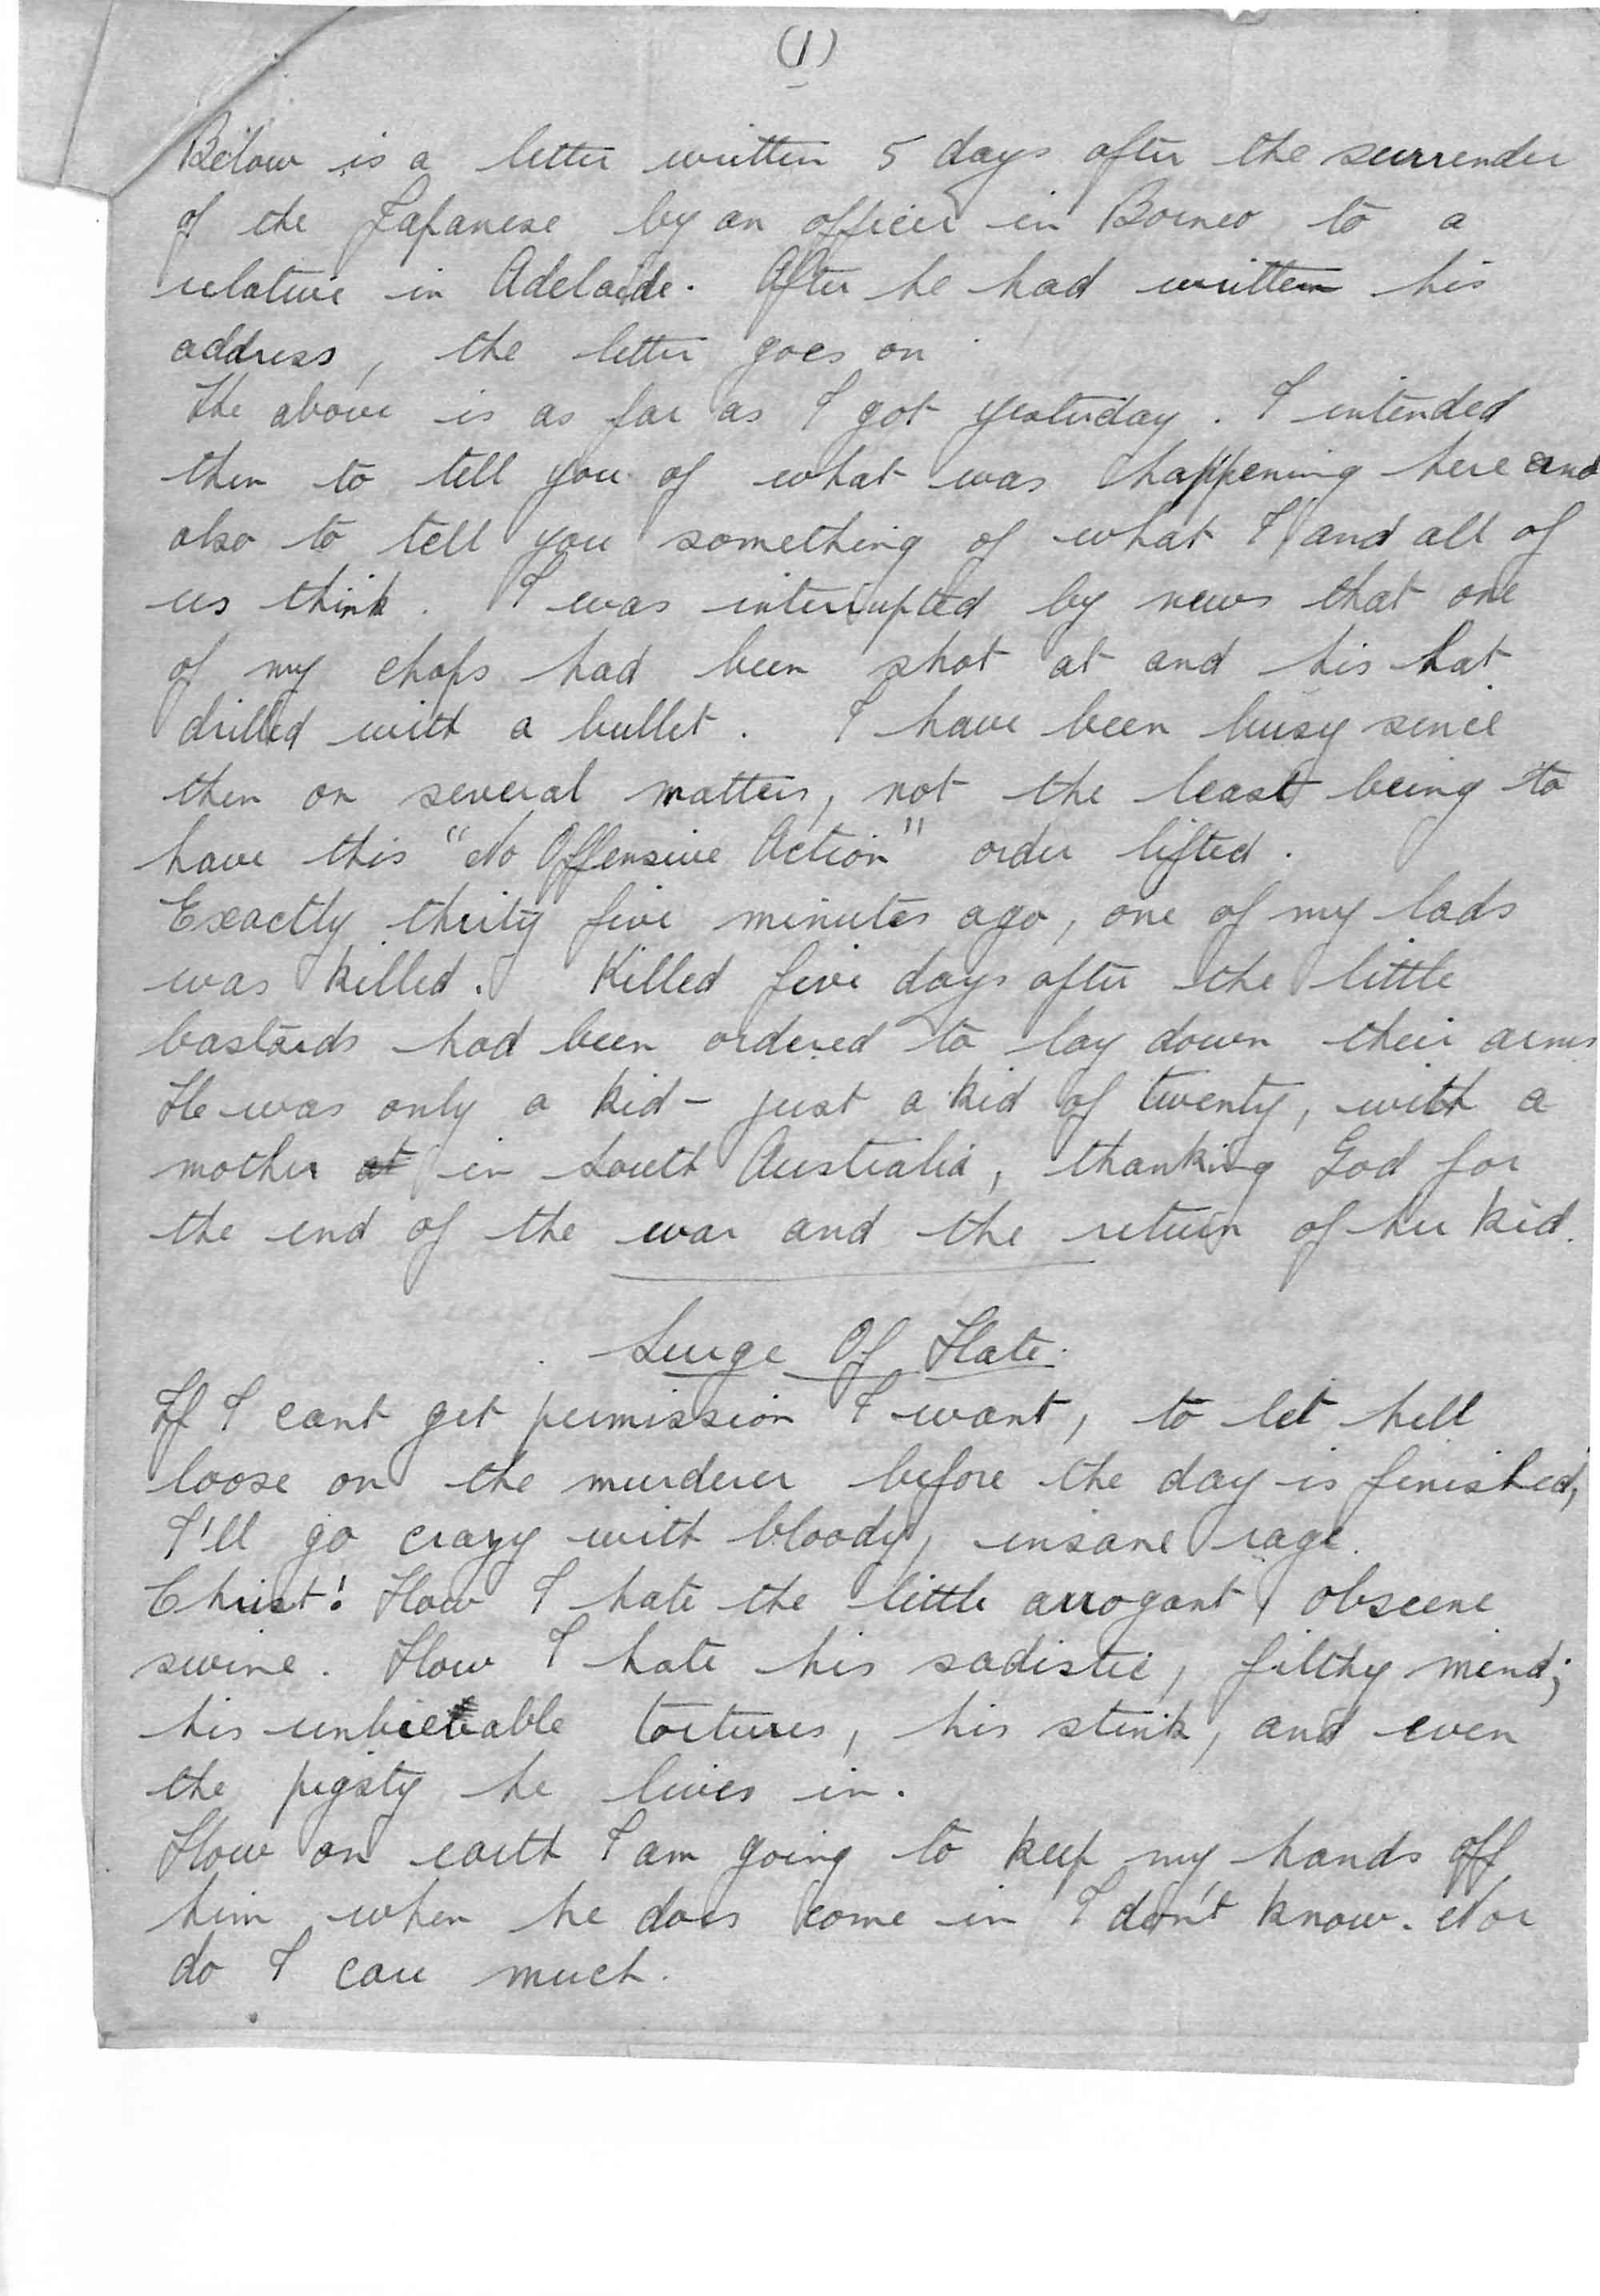 (1)
Below is a letter written 5 days after the surrender
of the Japanese by an officer in Borneo to a
relative in Adelaide. After he had written his
address, the letter goes on
The above is as far as I got yesterday. I intended
then to tell you of what was happening here and
also to tell you something of what I and all of
us think. I was interrupted by news that one
of my chaps had been shot at and his hat
drilled with a bullet. I have been busy since
then on several matters, not the least being to
have this "No Offensive Action" order lifted.
Exactly thrity five minutes ago, one of my lads
was killed. Killed five days after the little
bastards had been ordered to lay down their arms
He was only a kid - just a kid of twenty, with a
mother at in South Australia, thanking God for
the end of the war and the return of her kid.
Surge Of Hate.
If I cant get permission I want, to let hell
loose on the murderer before the day is finished,
I'll go crazy with bloody, insane rage.
Christ! How I hate the little arrogant, obscene
swine. How I hate his sadistic, filthy mind;
his tortures, his stink, and even
the pigsty he lives in.
How on earth I am going to keep my hands off
him when he does come in I don't know. Nor
do I care much.